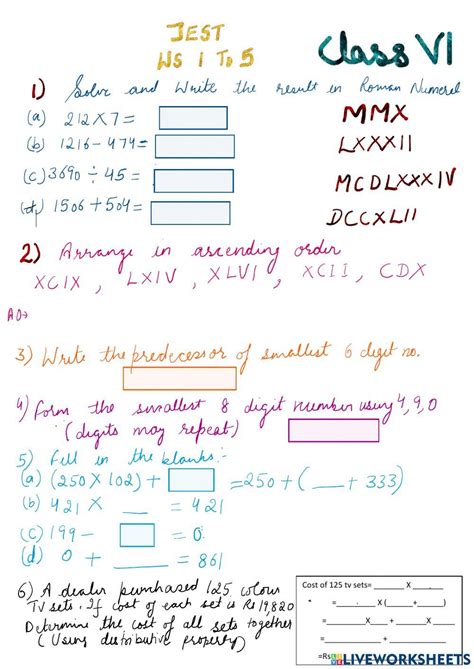 TEST
WS 1 To 5
Class VI
1) Solve and Write the result in Roman Numeral
(a) 212 X 7 =
MMX
(b) 1216 - 474 =
LXXXII
(c) 3690 ÷ 45 =
MCDLXXXIV
(d) 1506 + 504 =
DCCXLII
2) Arrange in ascending order
XCIX , LXIV , XLVI , XCII , CDX
AO→
3) Write the predecessor of smallest 6 digit no.
4) Form the smallest 8 digit number using 4, 9, 0
(digits may repeat)
5) Fill in the blanks:-
(a) (250 X 102) + = 250 + ( __ + 333)
(b) 421 X __ = 421
(c) 199 - __ = 0
(d) 0 + __ = 861
6) A dealer purchased 125 colour
TV sets. If cost of each set is Rs 19,820
Determine the cost of all sets together
(Using distributive property)
Cost of 125 tv sets= ______ X ____
" =_____ X ( ____ + ____ )
=(____ X ____) + (____ X ____)
= ______ + ______
=Rs
LIVEWORKSHEETS